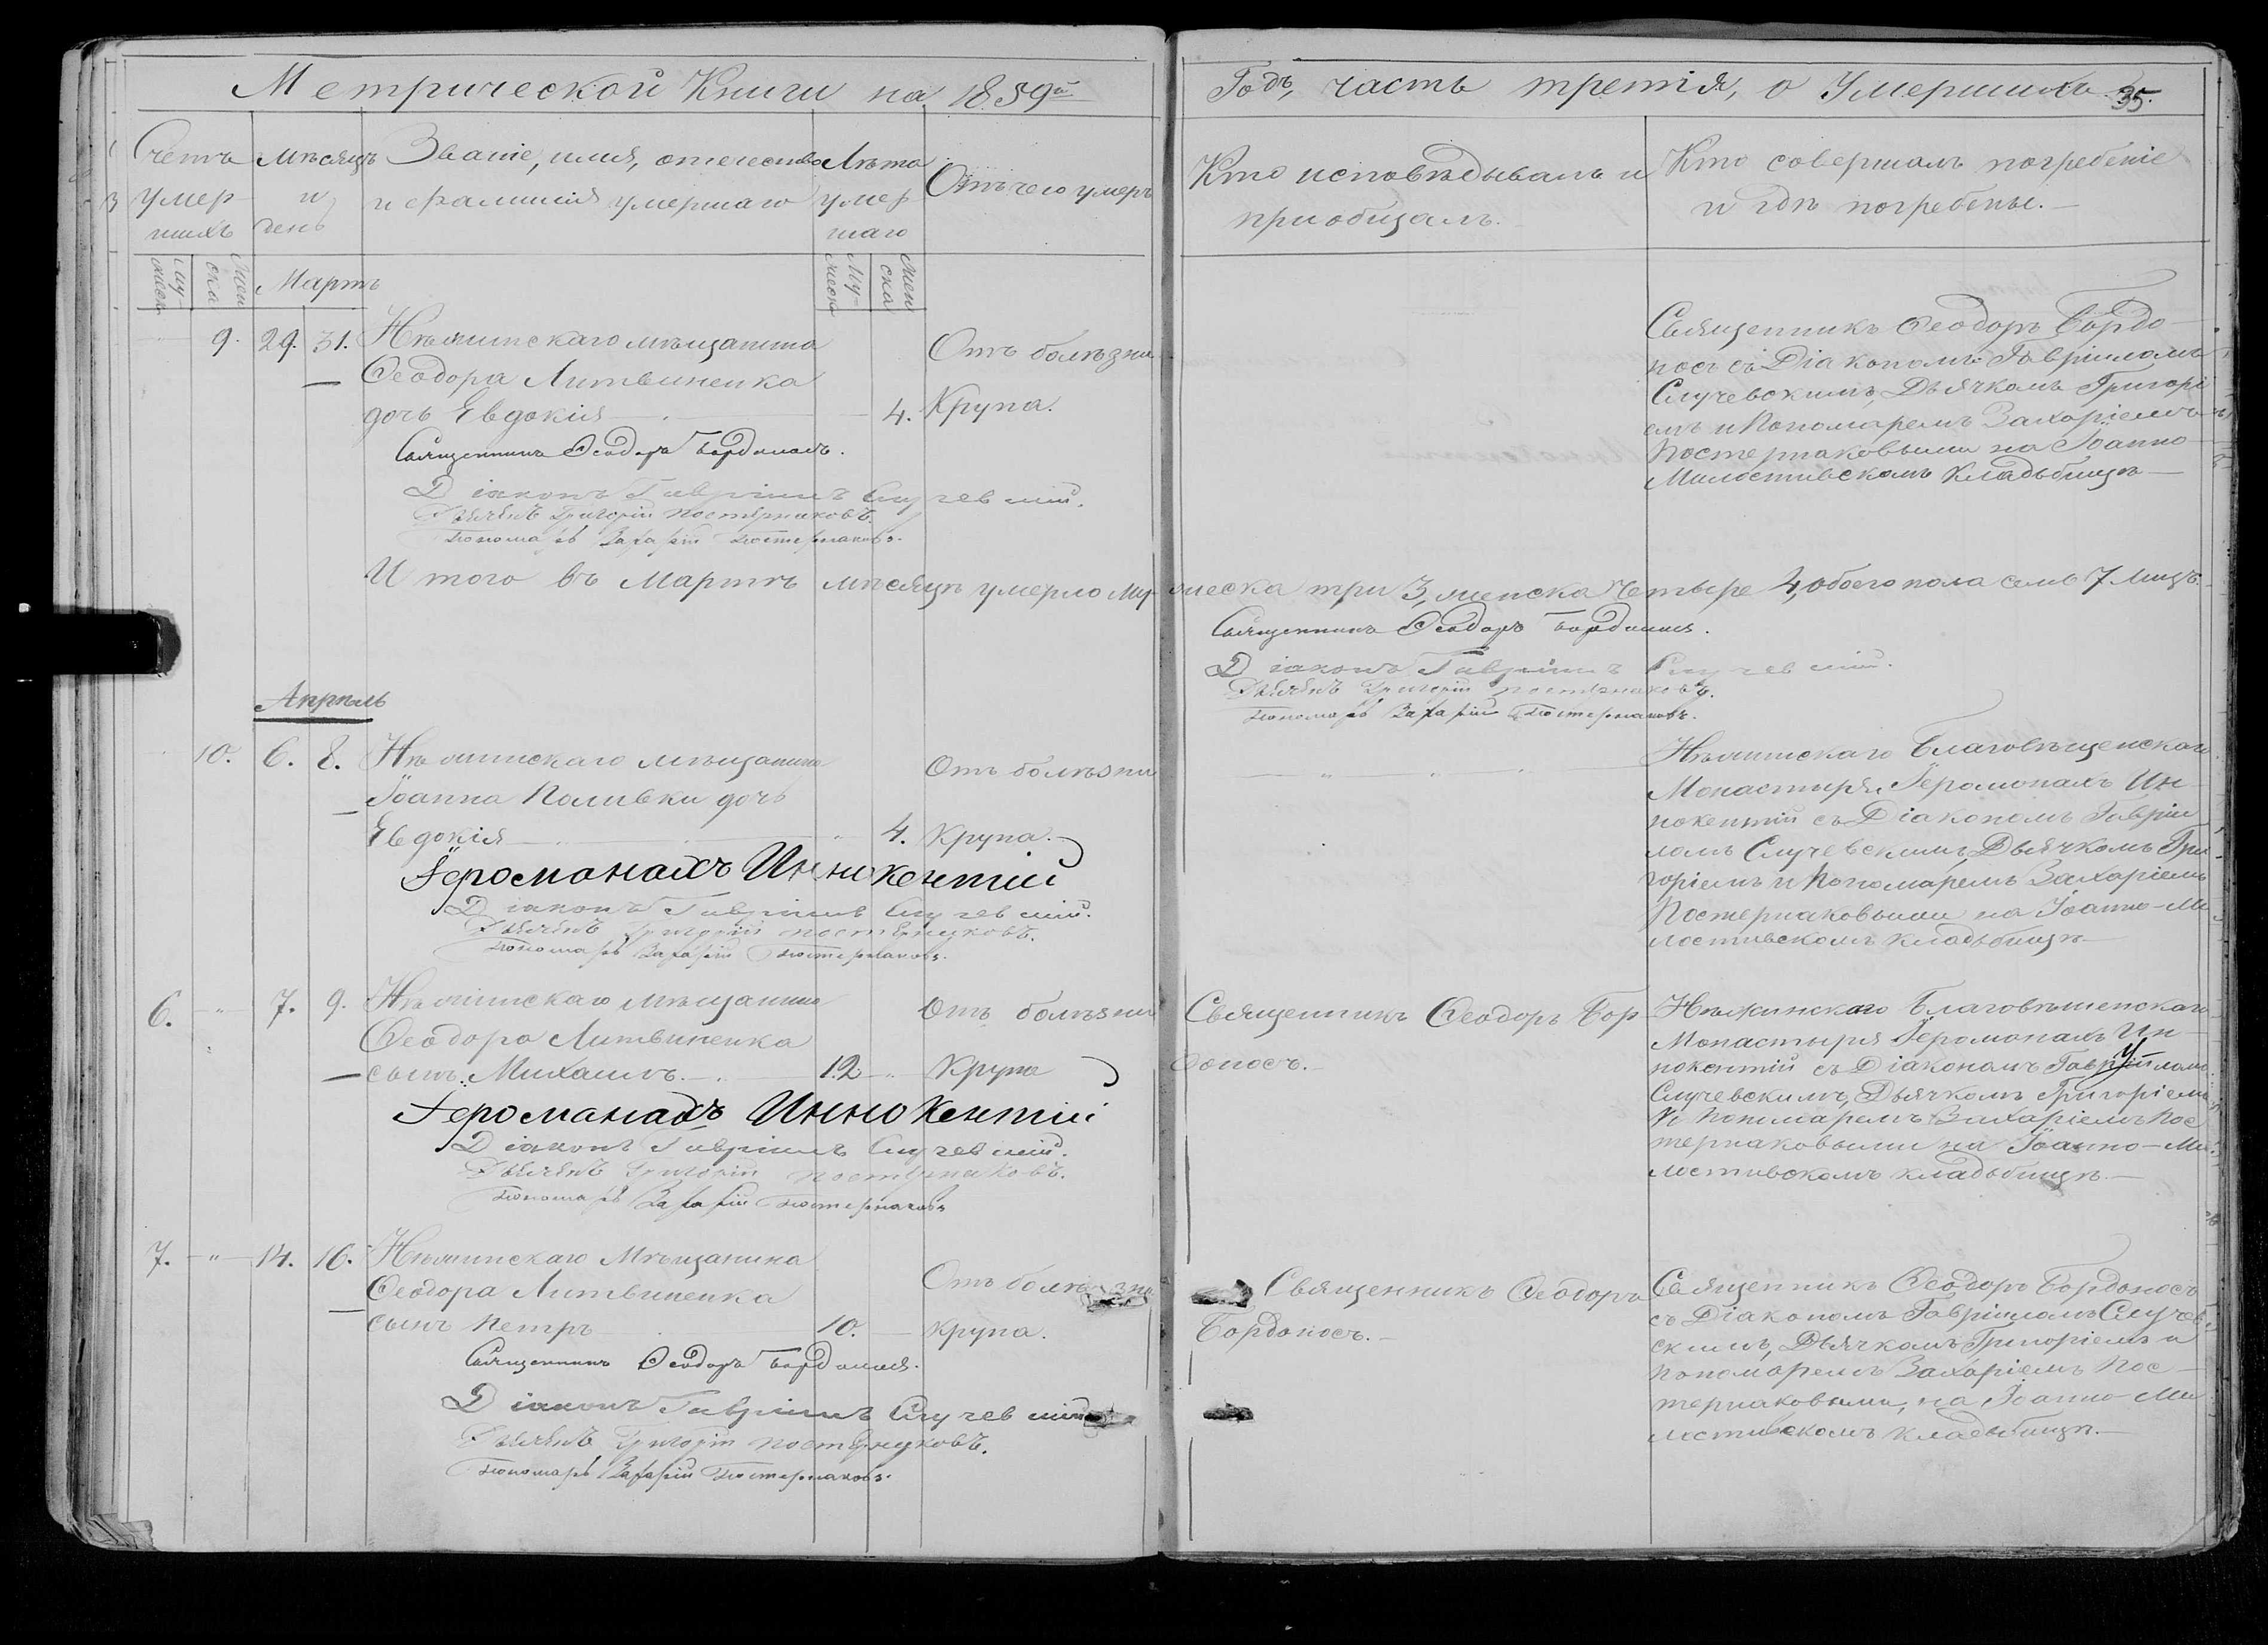 Метрической Книги на 1859й
Годъ, часть третія, о Умершихъ.
35.
Счетъ умер-
шихъ
Мѣсяцъ
и
день
Званіе, имя, отечество
и фамилія умершаго
Лѣта
умер-
шаго
Отъ чего умеръ
Кто исповѣдывалъ и
пріобщалъ.
Кто совершалъ погребеніе
и гдѣ погребены.
Му-
жеска
Жен
ска
Мартъ
Му-
жеска
Жен
ска
9. 29. 31. Нѣжинскаго мѣщанина
Ѳеодора Литвиненка
дочь Евдокія 4.
Отъ болѣзни
Крупа.
Священникъ Ѳеодоръ Бордоносъ.
Діаконъ Гавріилъ Случевскій.
Дьячекъ Григорій Постернаковъ.
Пономарь Захарій Постернаковъ.
Священникъ Ѳеодоръ Бордо-
носъ съ Діакономъ Гавріиломъ
Случевскимъ, Дьячкомъ Григорі
емъ и Пономаремъ Захаріемъ
Постернаковыми на Іоанно
Милостивскомъ Кладьбищѣ
И того въ Мартѣ мѣсяцѣ умерло му-жеска три 3, женска Четыре 4, обоего пола семь 7 лицъ.
Священникъ Ѳеодоръ Бордоносъ.
Діаконъ Гавріилъ Случевскій.
Дьячекъ Григорій Постернаковъ.
Пономарь Захарій Постернаковъ.
Апрѣль
10. 6. 8. Нѣжинскаго мѣщанина
Іоанна Поливки дочь
Евдокія 4.
Отъ болѣзни
Крупа.
Іеромонахъ Иннокентій
Діаконъ Гавріилъ Случевскій.
Дьячекъ Григорій Постернаковъ.
Пономарь Захарій Постернаковъ.
Нѣжинскаго Благовѣщенскаго
Монастыря Іеромонахъ Ин-
нокентій съ Діакономъ Гаврии
ломъ Случевскимъ, Дьячкомъ Гри
горіемъ и Пономаремъ Захаріемъ
Постернаковыми на Іоанно-Ми
лостивскомъ кладьбищѣ
6. 7. 9. Нѣжинскаго мѣщанина
Ѳеодора Литвиненка
сынъ Михаилъ. 12
Отъ болѣзни
Крупа
Іероманахъ Иннокентій
Діаконъ Гавріилъ Случевскій.
Дьячекъ Григорій Постернаковъ.
Пономарь Захарій Постернаковъ
Священникъ Ѳеодоръ Бор
доносъ.
Нѣжинского Благовѣщенскаго
Монастыря Іеромонахъ Ин-
нокентій съ Діакономъ Гавріиломъ
Случевскимъ, Дьячкомъ Григоріемъ
и Пономаремъ Захаріемъ Пос
тернаковыми на Іоанно-Ми
лостивскомъ кладьбищѣ.
7. 14. 16. Нѣжинскаго Мѣщанина
Ѳеодора Литвиненка
сынъ Петръ 10.
Отъ болѣзни
крупа.
Священникъ Ѳеодоръ Бордоносъ.
Діаконъ Гавріилъ Случевскій
Дьячекъ Григорій Постернаковъ.
Пономарь Захарій Постернаковъ.
Священникъ Ѳеодоръ
Бордоносъ.
Священникъ Ѳеодоръ Бордоносъ
съ Діакономъ Гавріиломъ Случев
скимъ, Дьячкомъ Григоріемъ и
Пономаремъ Захаріемъ Пос
тернаковыми, на Іоанно-Ми
лостивскомъ кладьбищѣ.